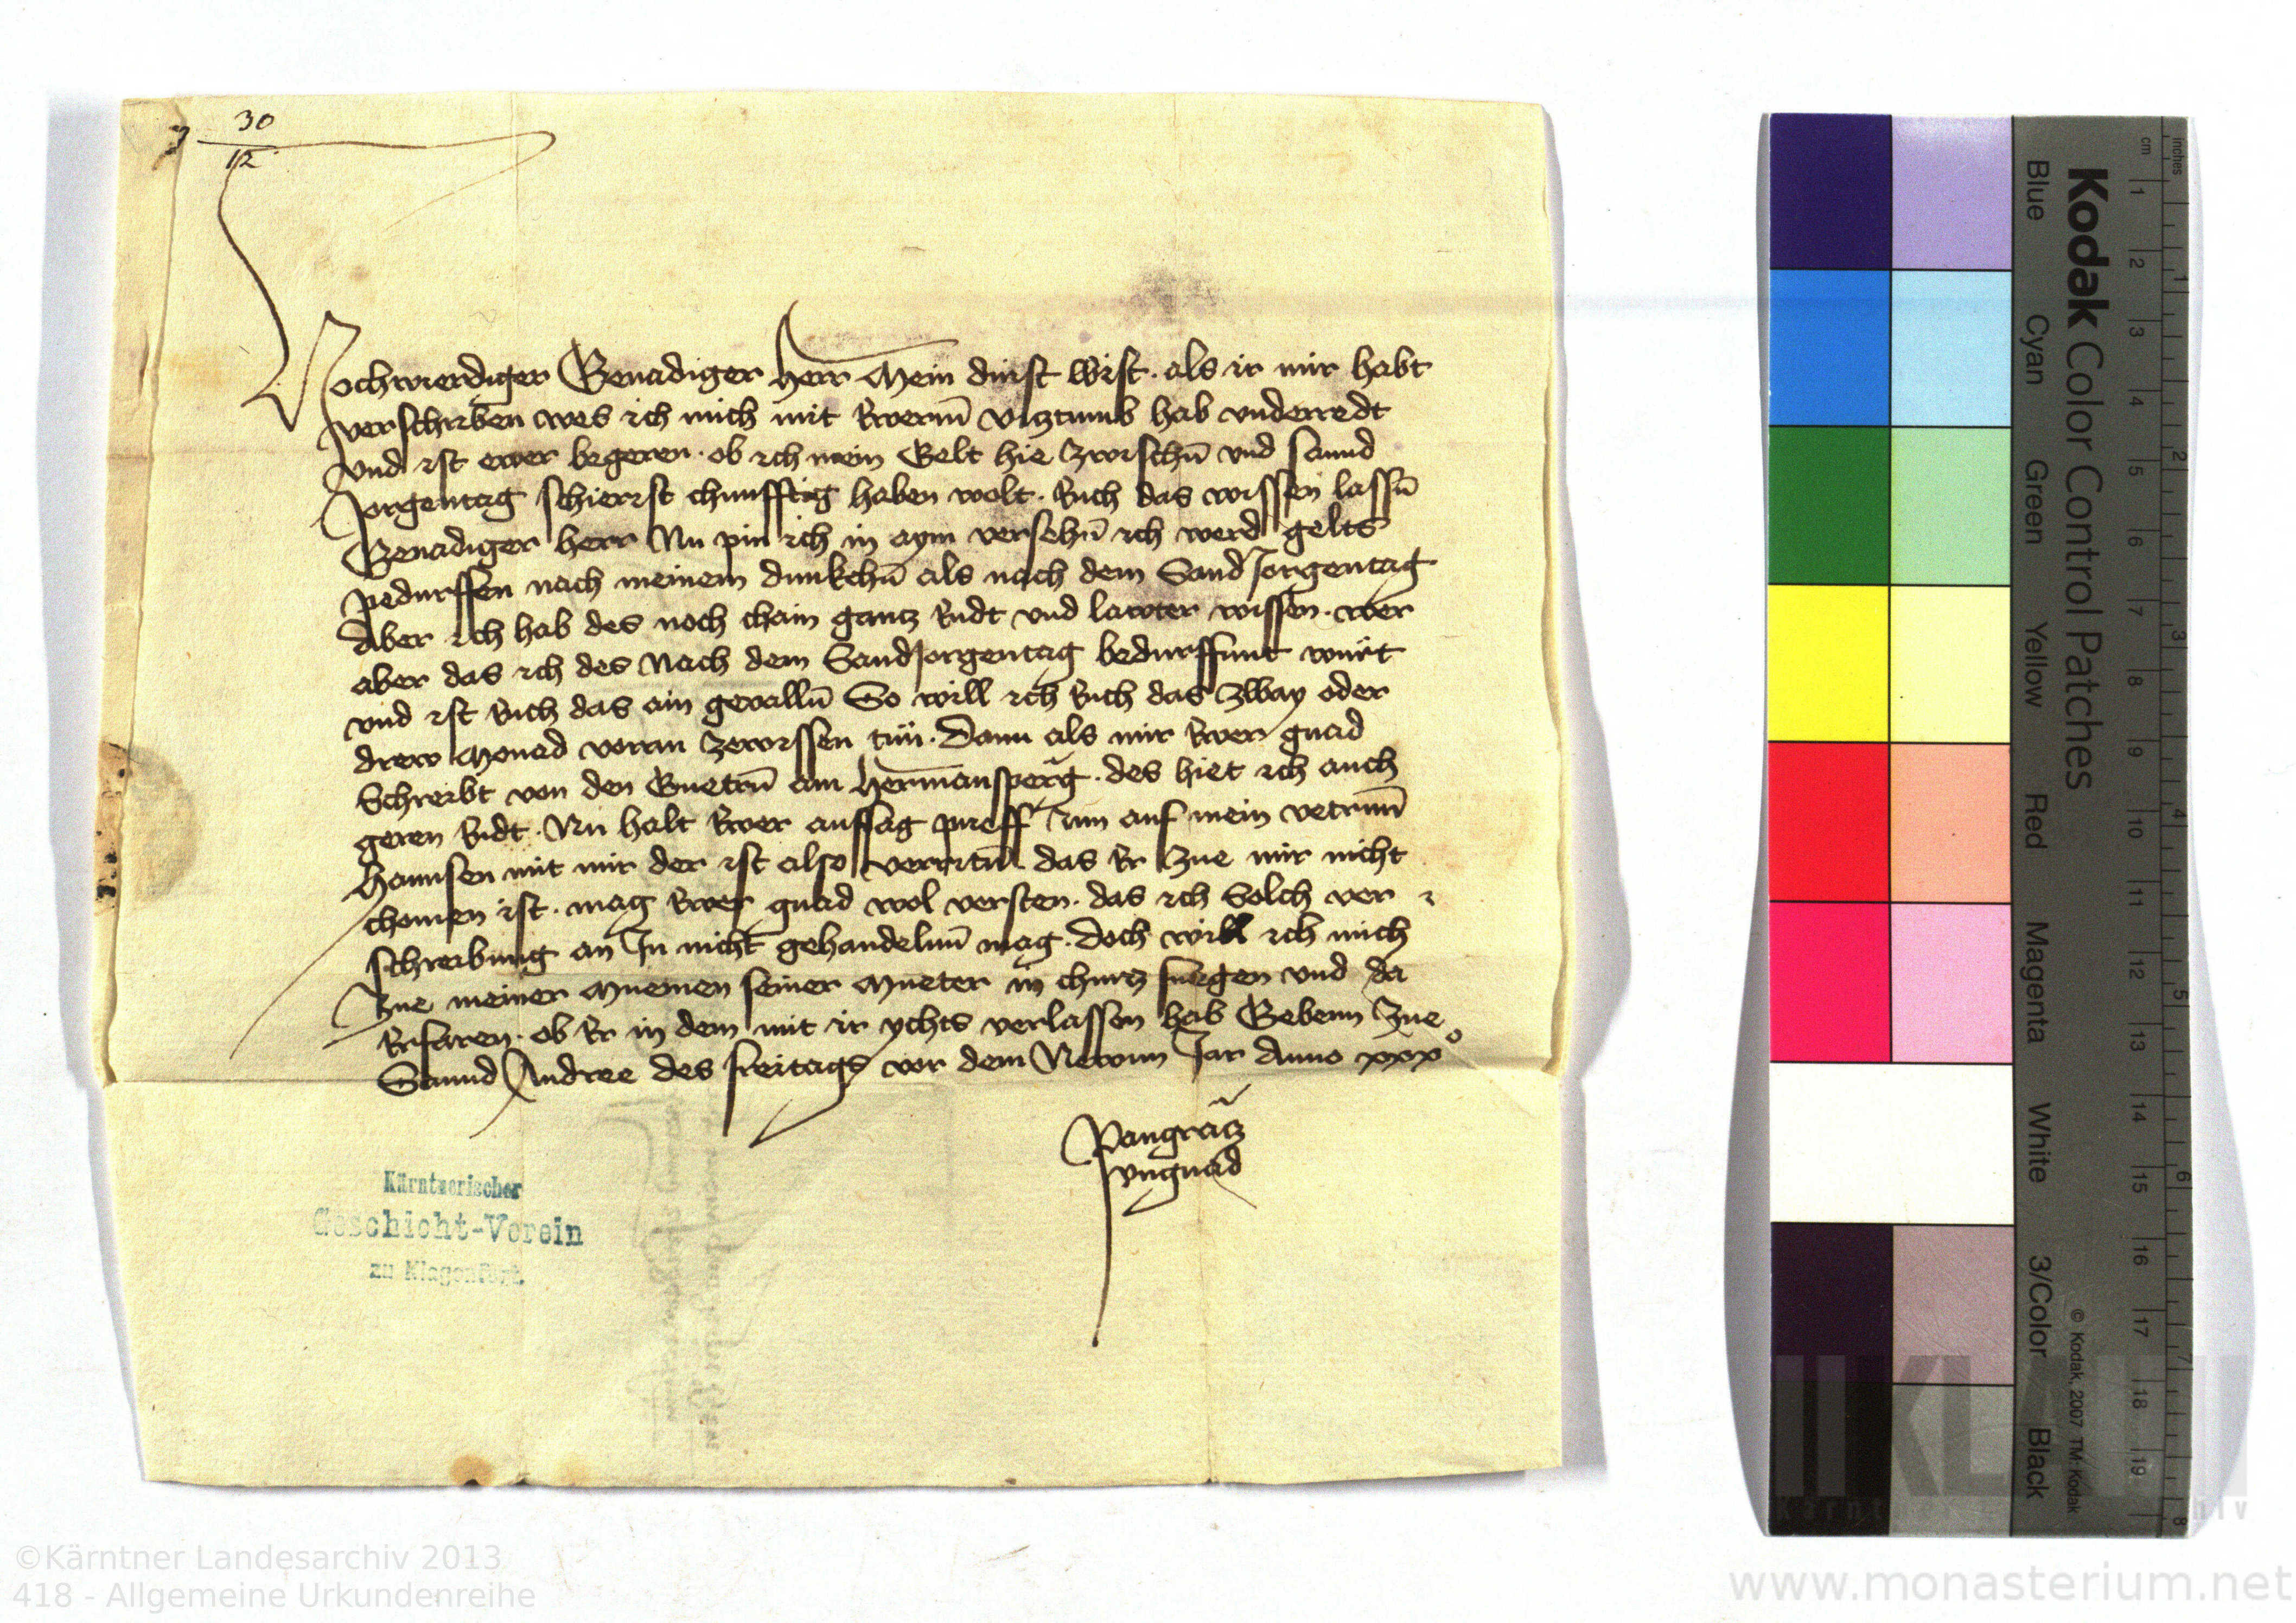 30
12
Hochwierdiger Genadiger herr Mein dinst wist · als ir mir habt
verschriben wes ich mich mit Ewerm̄ viztumb hab vnderredt
Vnd ist ewer begeren · ob ich mein Gelt hie zwischn̄ vnd sannd
Jorgentag schierist chunfftig haben wolt · Euch das wissen lassn̄
Genadiger herr Nu pin ich in aym versehn̄ ich werd gelts
pedurffen nach meinem dunkchn̄ als nach dem Sand Jorgentag
Aber ich hab des noch chain gantz Endt vnd lawter wissen · wer
aber das ich des Nach dem Sand Jorgentag bedurffunt wurt
vnd ist Euch das ain geualln̄ So will ich Euch das zway oder
drew Moned voran zewissen tun · Dann als mir Ewer gnad
Schreibt von den Guetrn̄ am Hermansperg · des hiet ich auch
geren Endt · Nu halt Ewer aufsag prieff Inn auf mein vetrnn̄
Hannsen mit mir der ist also verritn̄ das Er Zue mir nicht
chomen ist · mag Ewer gnad wol versten · das ich Solch ver
schreibung an In nicht gehandelnn̄ mag · Doch will ich mich
Zue meiner Muemen seiner Mueter in churtz fuegen vnd da
Erfaren · ob Er in dem mit ir ychts verlassen hab Gebenn Zue
Sannd Andree des freitags vor dem Newnn Jar Anno xxxo
Pangrätz
vngnad
Kärntnerischer
Geschicht-Verein
zu Klagenfurt.
Kodak Color Control Patches
Blue Cyan Green Yellow Red Magenta White 3/Color Black
© Kodak, 2007 TM: Kodak
cm 1 2 3 4 5 6 7 8 9 10 11 12 13 14 15 16 17 18 19
inches 1 2 3 4 5 6 7 8
©Kärntner Landesarchiv 2013
418 - Allgemeine Urkundenreihe
www.monasterium.net